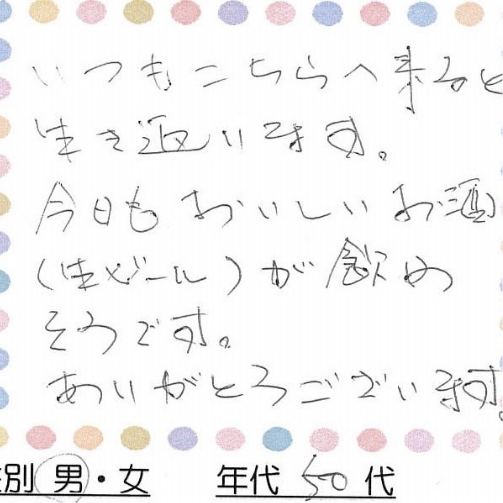 いつもこちらへ来ると
生き返ります。
今日もおいしいお酒
(生ビール)が飲め
そうです。
ありがとうございます。
性別 男・女 年代 50 代